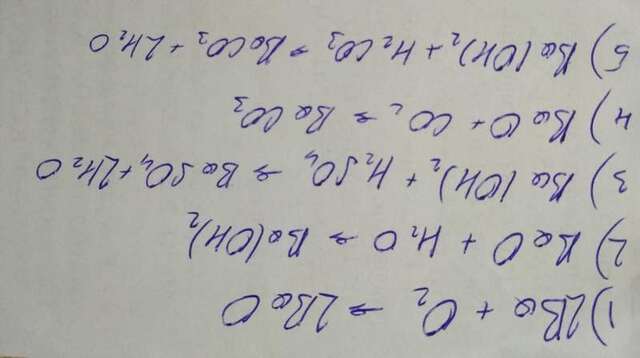 1) 2Ba + O₂ → 2BaO
2) BaO + H₂O → Ba(OH)₂
3) Ba(OH)₂ + H₂SO₄ → BaSO₄ + 2H₂O
4) BaO + CO₂ → BaCO₃
5) Ba(OH)₂ + H₂CO₃ → BaCO₃ + 2H₂O